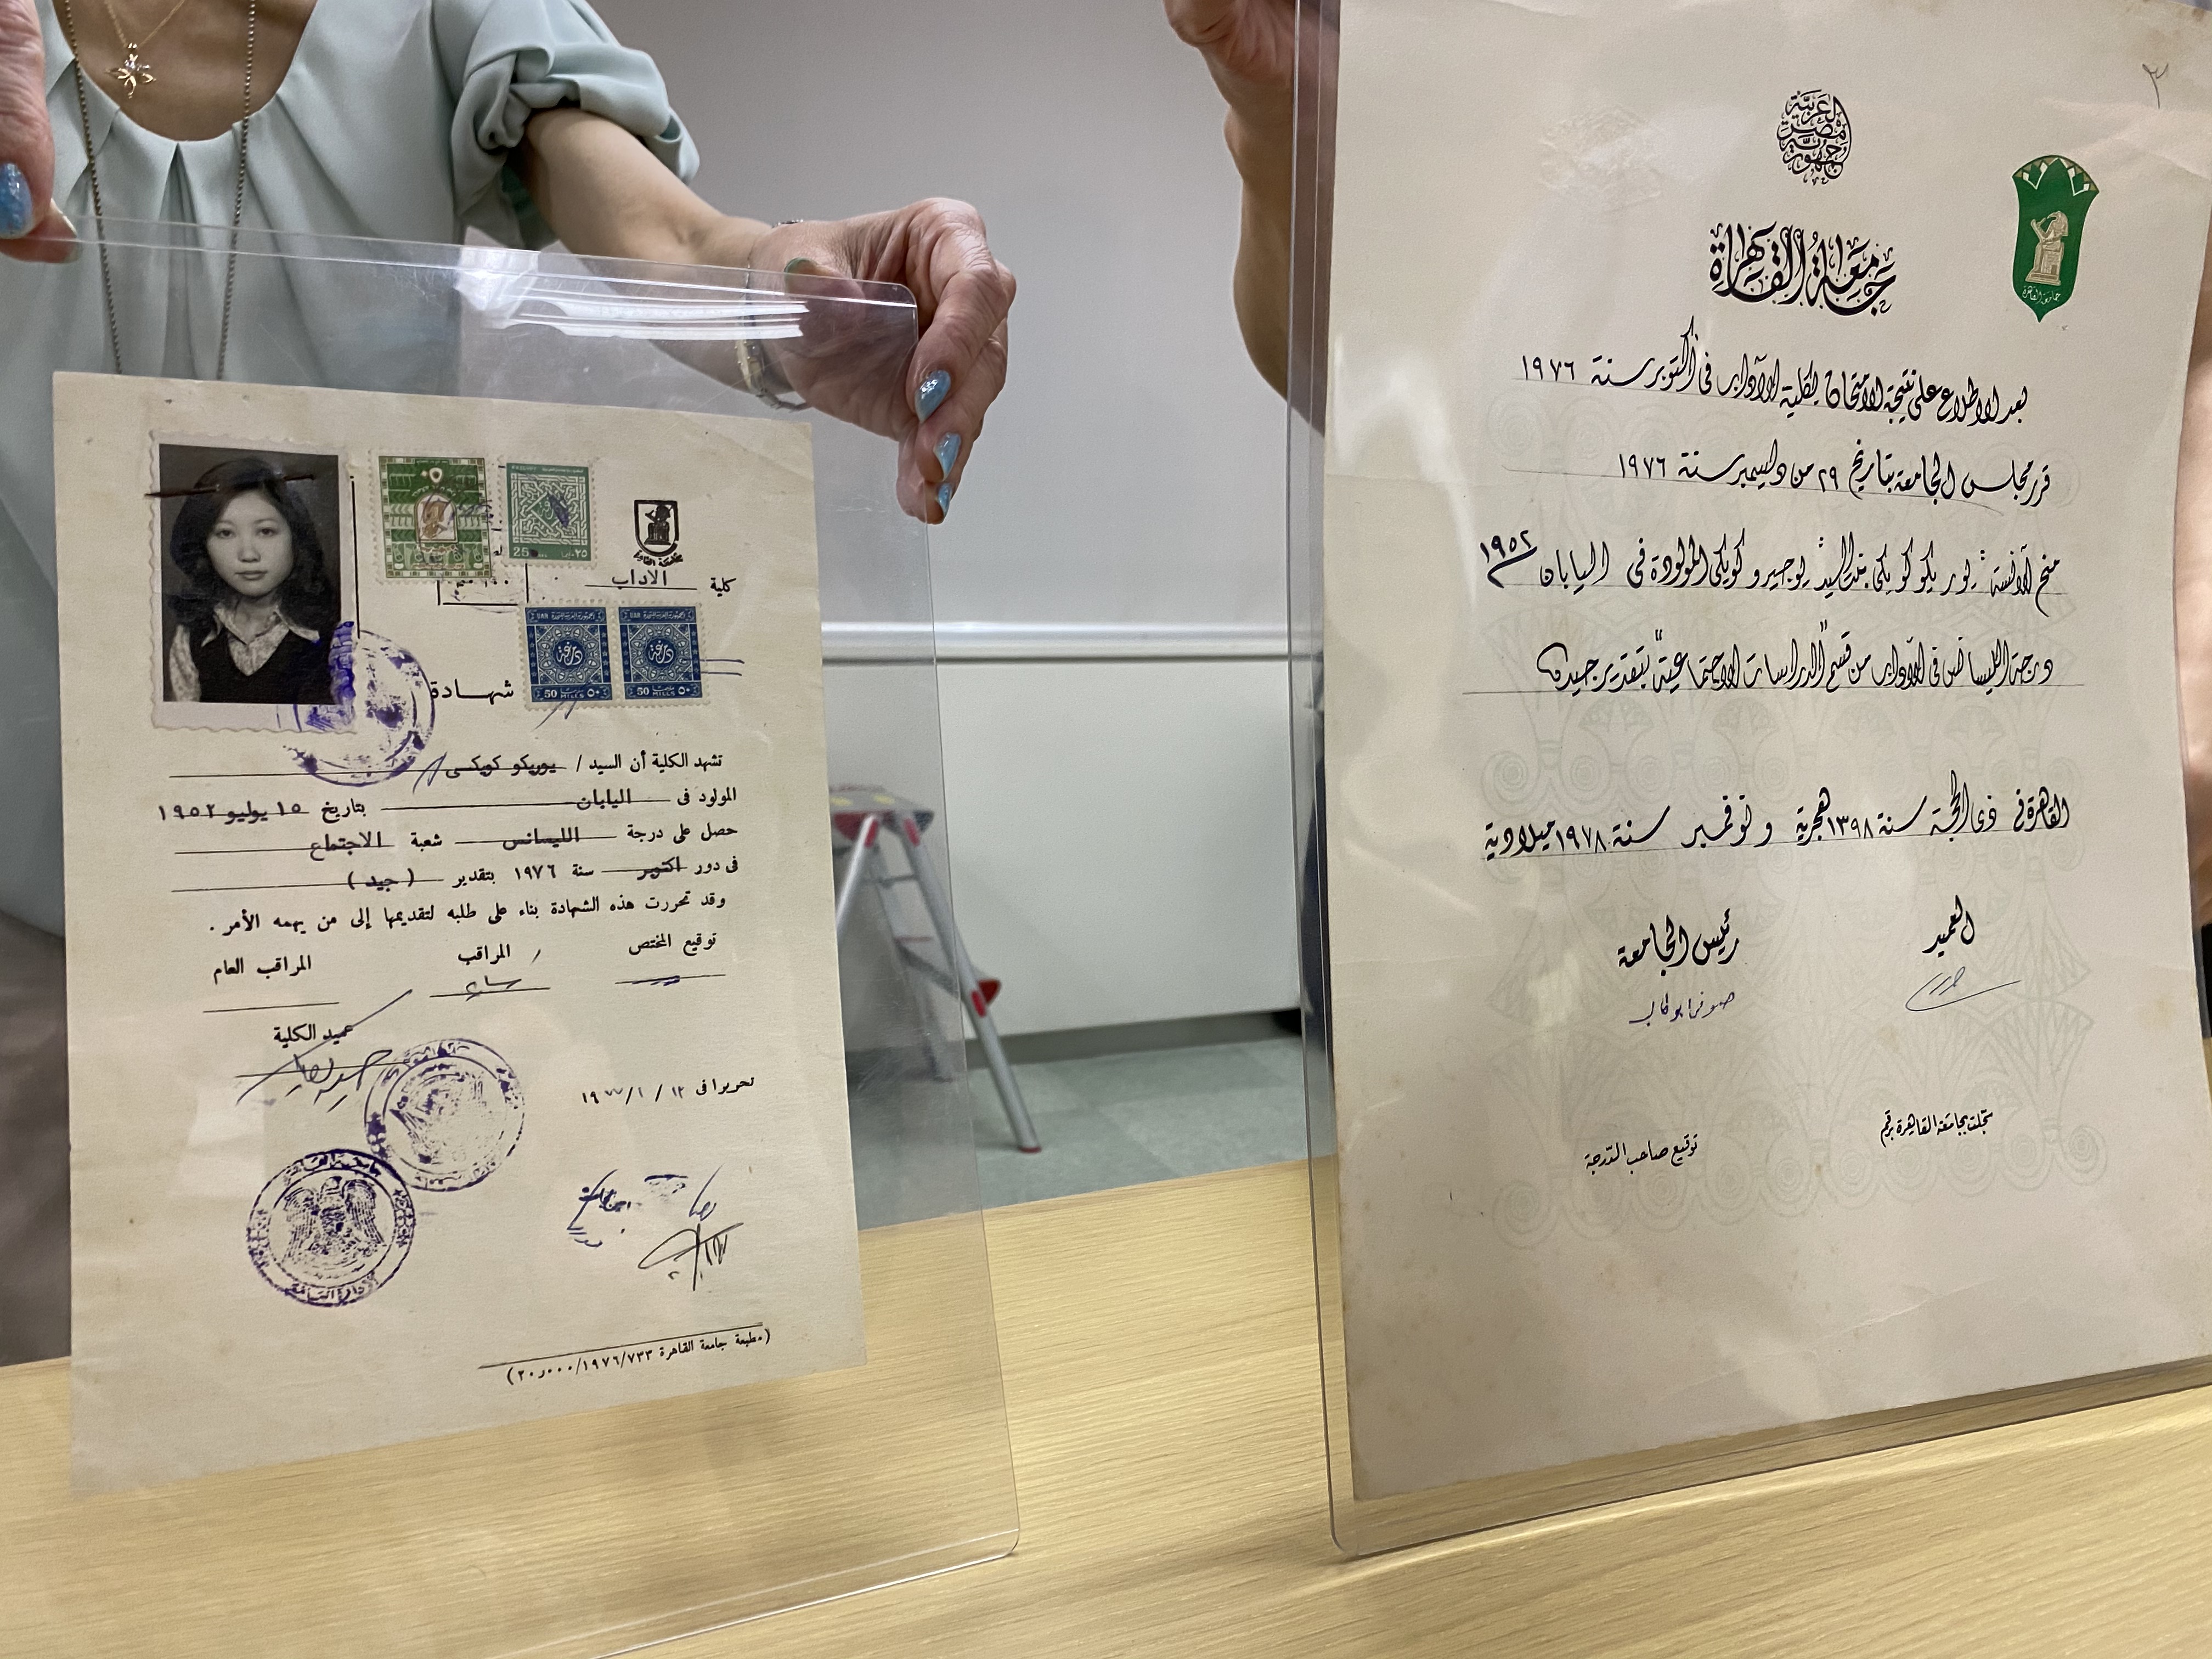 كلية الآداب
شهادة
تشهد الكلية أن السيد / يوريكو كويكى
المولود فى اليابان بتاريخ ١٥ يوليو ١٩٥٢
حصل على درجة الليسانس شعبة الاجتماع
فى دور اكتوبر سنة ١٩٧٦ بتقدير ( جيد )
وقد تحررت هذه الشهادة بناء على طلبه لتقديمها إلى من يهمه الأمر .
توقيع المختص المراقب المراقب العام
عميد الكلية
تحريرا فى ١٢ / ١ / ١٩٧٧
(مطبعة جامعة القاهرة ٧٣٣/١٩٧٦/٢٠٫٠٠٠)
25
50 MILLS ٥٠
50 MILLS ٥٠
٣
جمهورية مصر العربية
جامعة القاهرة
جامعة القاهرة
بعد الاطلاع على نتيجة الامتحان لكلية الآداب فى أكتوبر سنة ١٩٧٦
قرر مجلس الجامعة بتاريخ ٢٩ من ديسمبر سنة ١٩٧٦
منح الآنسة يوريكو كويكى بنت السيد يوجيرو كويكى المولودة فى اليابان ١٩٥٢
درجة الليسانس فى الآداب من قسم "الدراسات الاجتماعية" بتقدير جيد
القاهرة فى ذى الحجة سنة ١٣٩٨ هجرية و نوفمبر سنة ١٩٧٨ ميلادية
العميد رئيس الجامعة
سجلت بجامعة القاهرة برقم توقيع صاحب الدرجة